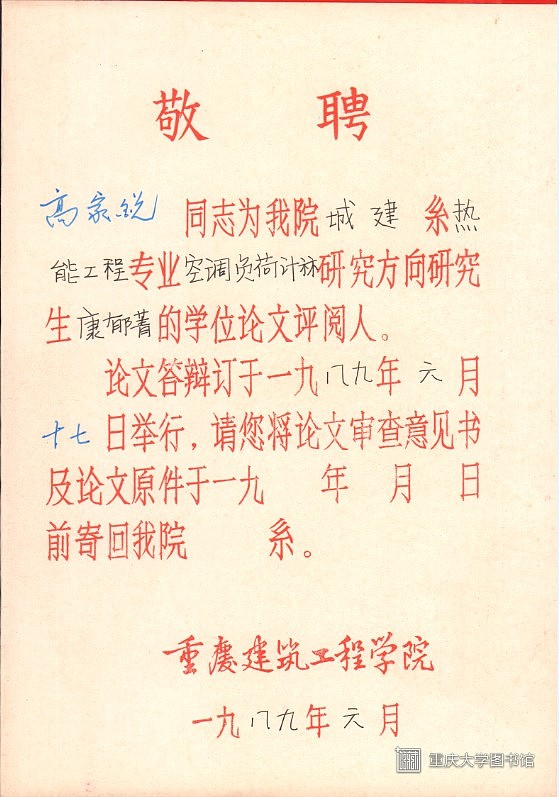 敬 聘
高家锐 同志为我院 城建 系热
能工程专业空调负荷计祘研究方向研究
生康郁菁的学位论文评阅人。
论文答辩订于一九八九年 元 月
十七 日举行，请您将论文审查意见书
及论文原件于一九 年 月 日
前寄回我院 系。
重庆建筑工程学院
一九八九年元月
重庆大学图书馆